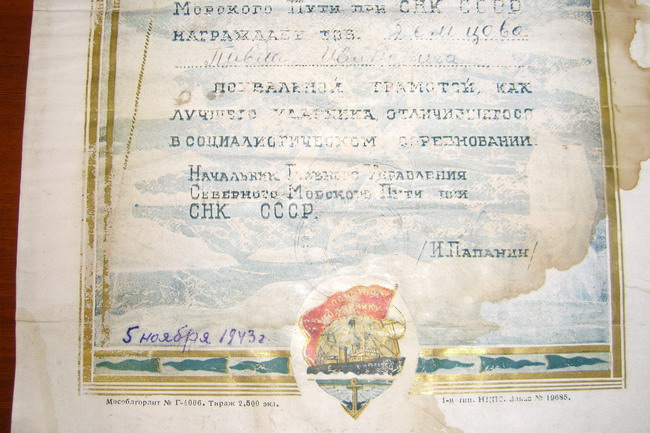 Морского Пути при СНК СССР
НАГРАЖДАЕТ тов. Земцова
Павла Ивановича
ПОХВАЛЬНОЙ ГРАМОТОЙ, КАК
ЛУЧШЕГО УДАРНИКА, ОТЛИЧИВШЕГОСЯ
В СОЦИАЛИСТИЧЕСКОМ СОРЕВНОВАНИИ.
Начальник Главного Управления
Северного Морского Пути при
СНК СССР.
/И.Папанин/
5 ноября 1943 г.
Мособлгорлит № Г-4006. Тираж 2,500 экз.
1-я тип. Заказ № 19685.